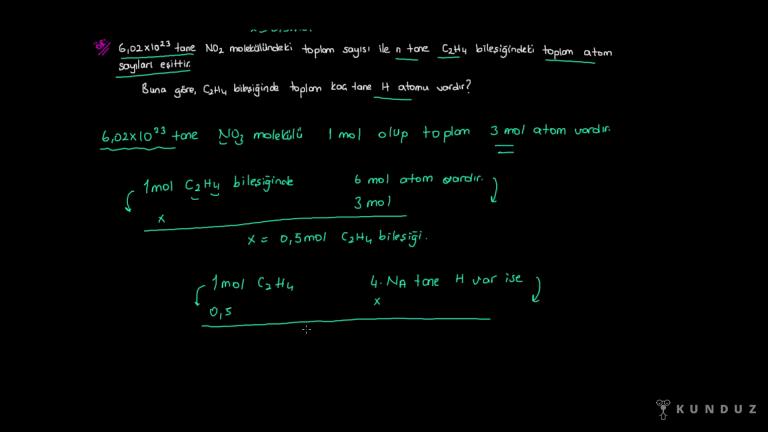 6,02x10²³ tane NO₂ molekülündeki toplam sayısı ile n tane C₂H₄ bileşiğindeki toplam atom
sayıları eşittir.
Buna göre, C₂H₄ bileşiğinde toplam kaç tane H atomu vardır?
6,02x10²³ tane NO₃ molekülü 1 mol olup toplam 3 mol atom vardır.
1mol C₂H₄ bileşiğinde 6 mol atom vardır.
x 3 mol
x = 0,5mol C₂H₄ bileşiği.
1mol C₂H₄ 4.NA tane H var ise
0,5 x
KUNDUZ